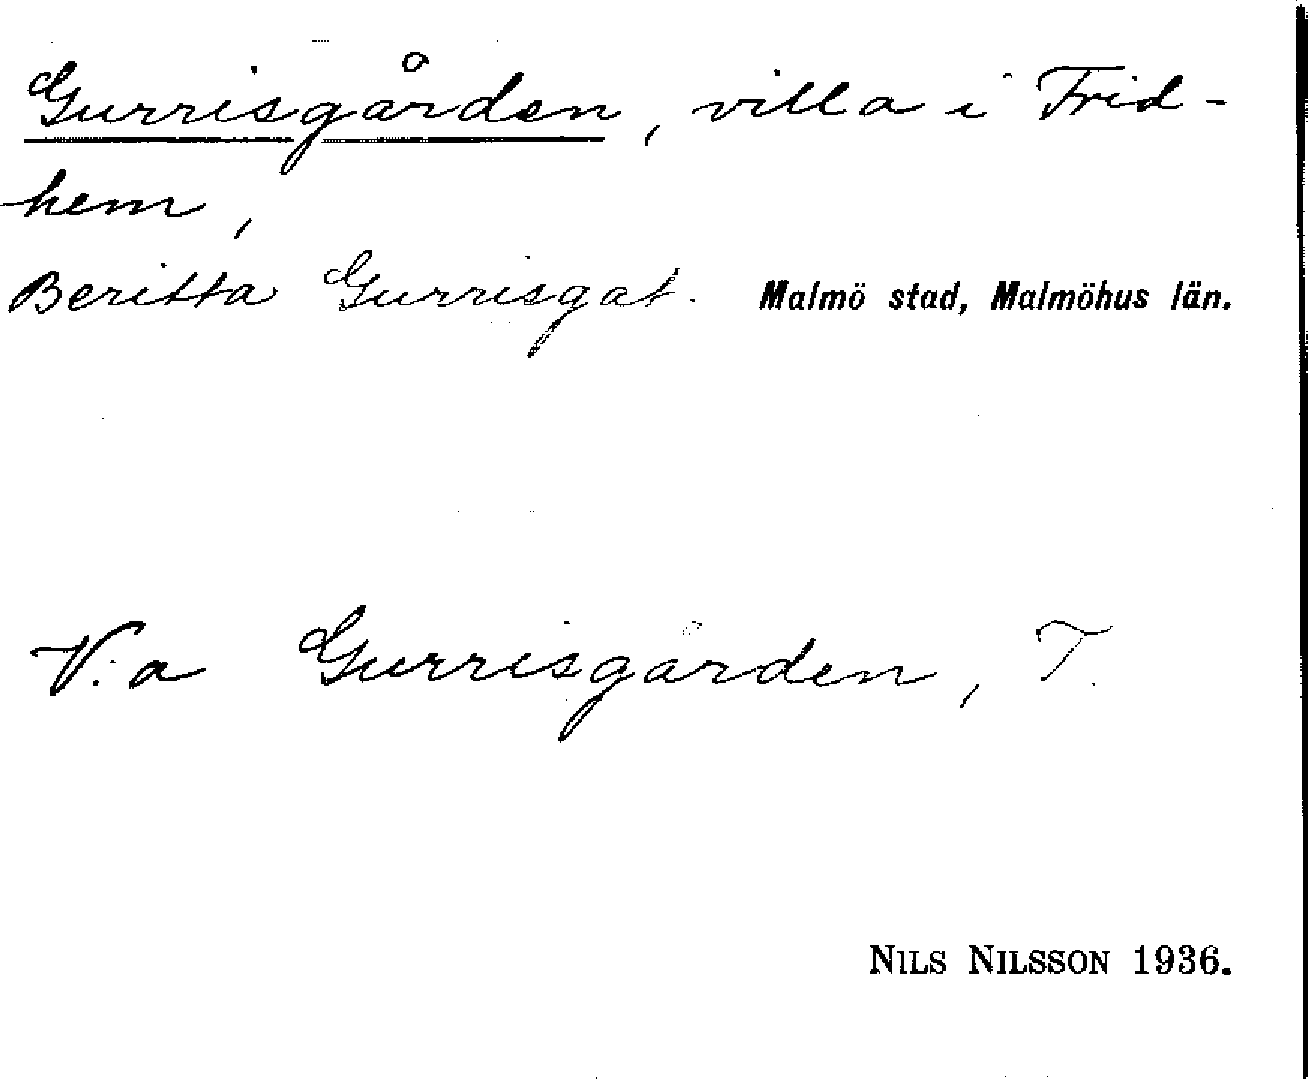 Gurrisgården, villa i Frid-
hem,
Beritta Gurrisgat. Malmö stad, Malmöhus län.
V:a Gurrisgården, T.
NILS NILSSON 1936.